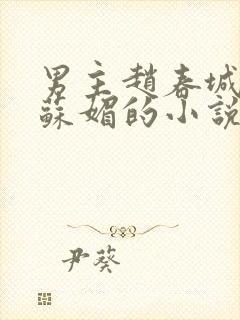 男主趙春城
蘇媚的小說
尹葵